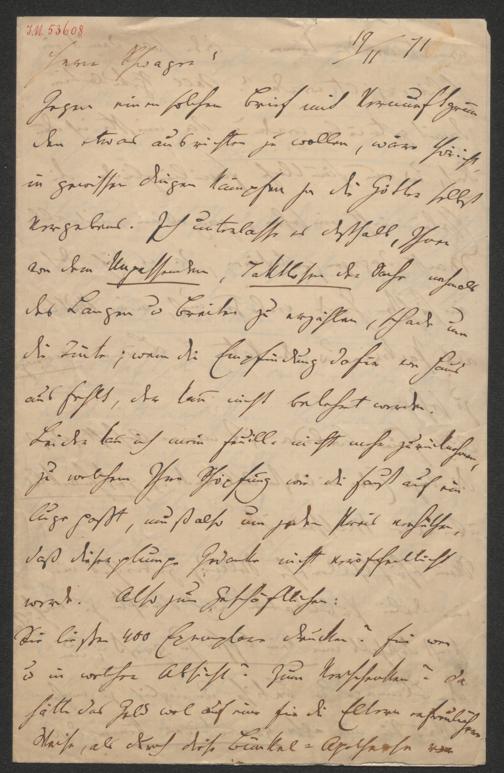 I.N. 53608
19/11 71
Herrn Schwager!
Gegen einen solchen Brief mit Vernunftgrün
den etwas ausrichten zu wollen, wäre thöricht,
in gewissen Dingen kämpfen ja die Götter selbst
vergebens. Ich unterlasse es deßhalb, Ihnen
von dem Unpassenden, Taktlosen der Sache nochmals
des Langen u Breiten zu erzählen, schade um
die Tinte; wem die Empfindung dafür von Haus
aus fehlt, der kann nicht belehrt werden.
Leider kann ich mein nicht mehr zurücknehmen,
zu welchem Ihre Schöpfung wie die Faust auf ein
Auge paßt, muß also um jeden Preis verhüten,
daß dieser plumpe Gedanke nicht veröffentlicht
werde. Also zum Geschäftlichen:
Sie ließen 400 Exemplare drucken? für wen
u in welcher Absicht? Zum Verschenken? Da
hätte das Geld wol auf eine für die Eltern erfreulichere
Weise, als durch diese Apotheose